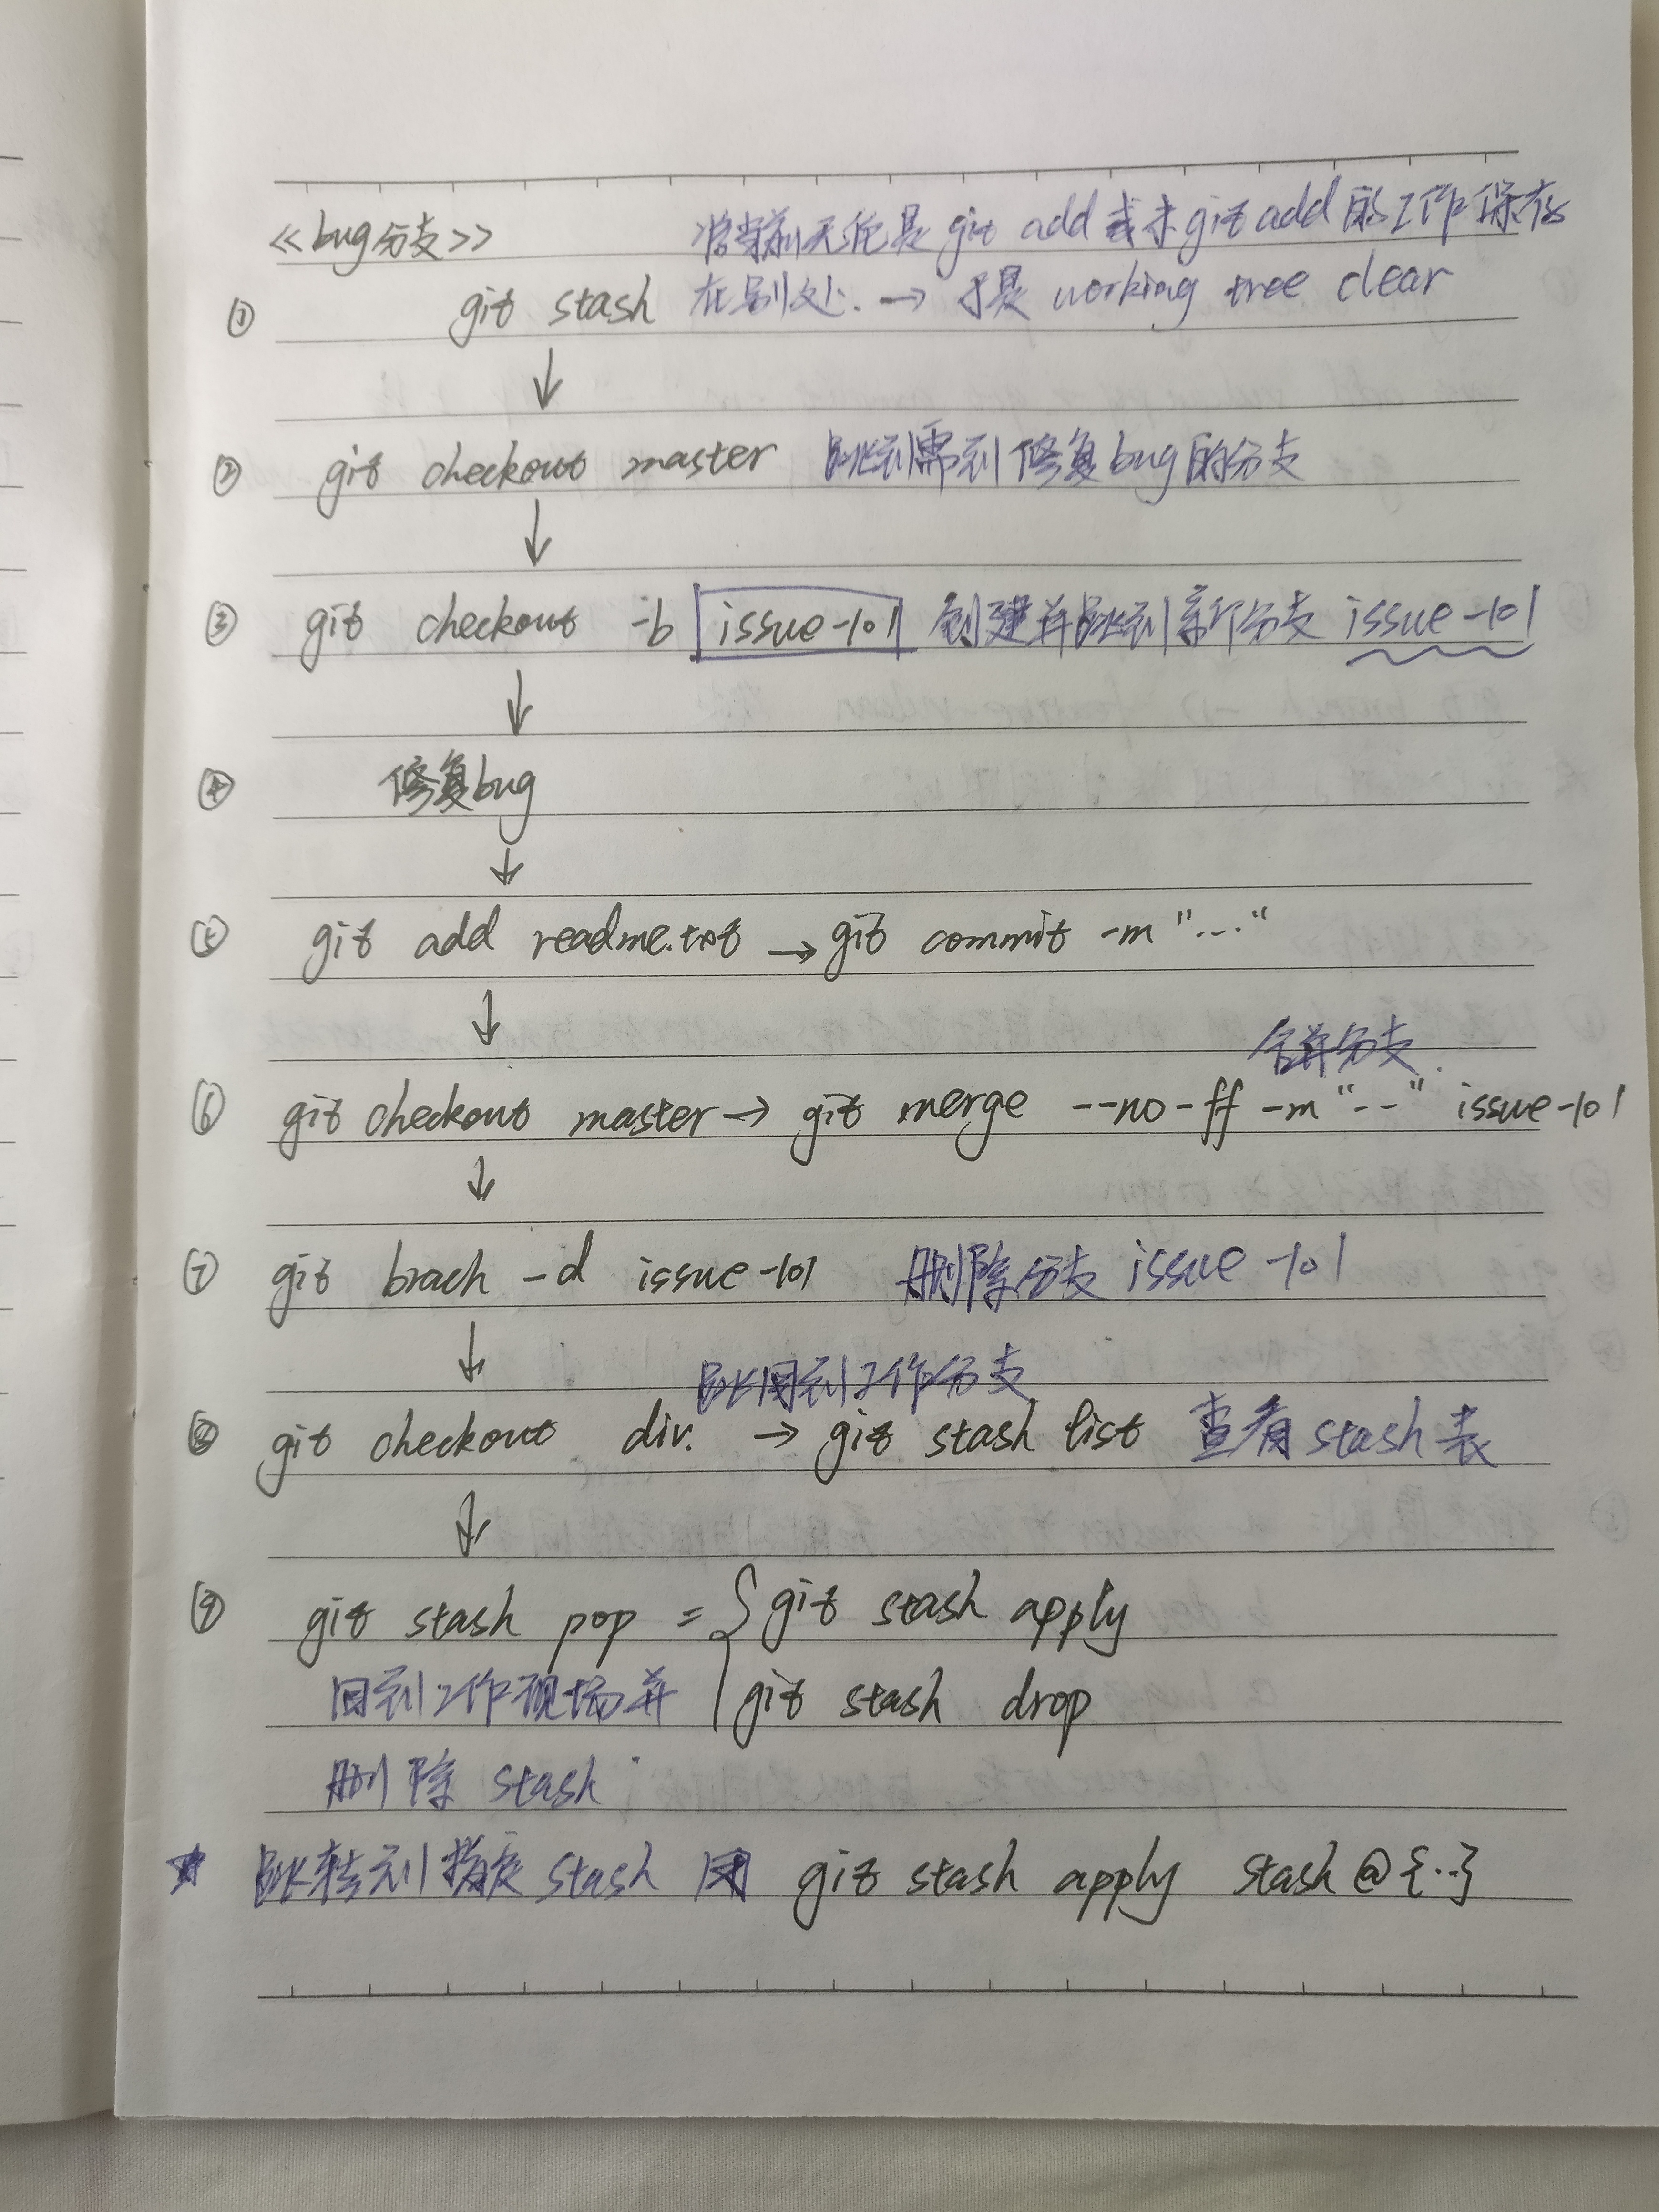 <<bug分支>> 将当前无论是git add或未git add的工作保存
① git stash 在别处. → 于是 working tree clear
↓
② git checkout master 跳到需到修复bug的分支
↓
③ git checkout -b issue-101 创建并跳到新分支 issue-101
↓
④ 修复bug
↓
⑤ git add readme.txt → git commit -m "..."
↓
合并分支.
⑥ git checkout master → git merge --no-ff -m "--" issue-101
↓
⑦ git brach -d issue-101 删除分支 issue-101
↓
跳回到工作分支
⑧ git checkout div. → git stash list 查看stash表
↓
⑨ git stash pop = { git stash apply
回到工作现场并 git stash drop
删除 stash
★ 跳转到指定 stash 用 git stash apply stash@{..}